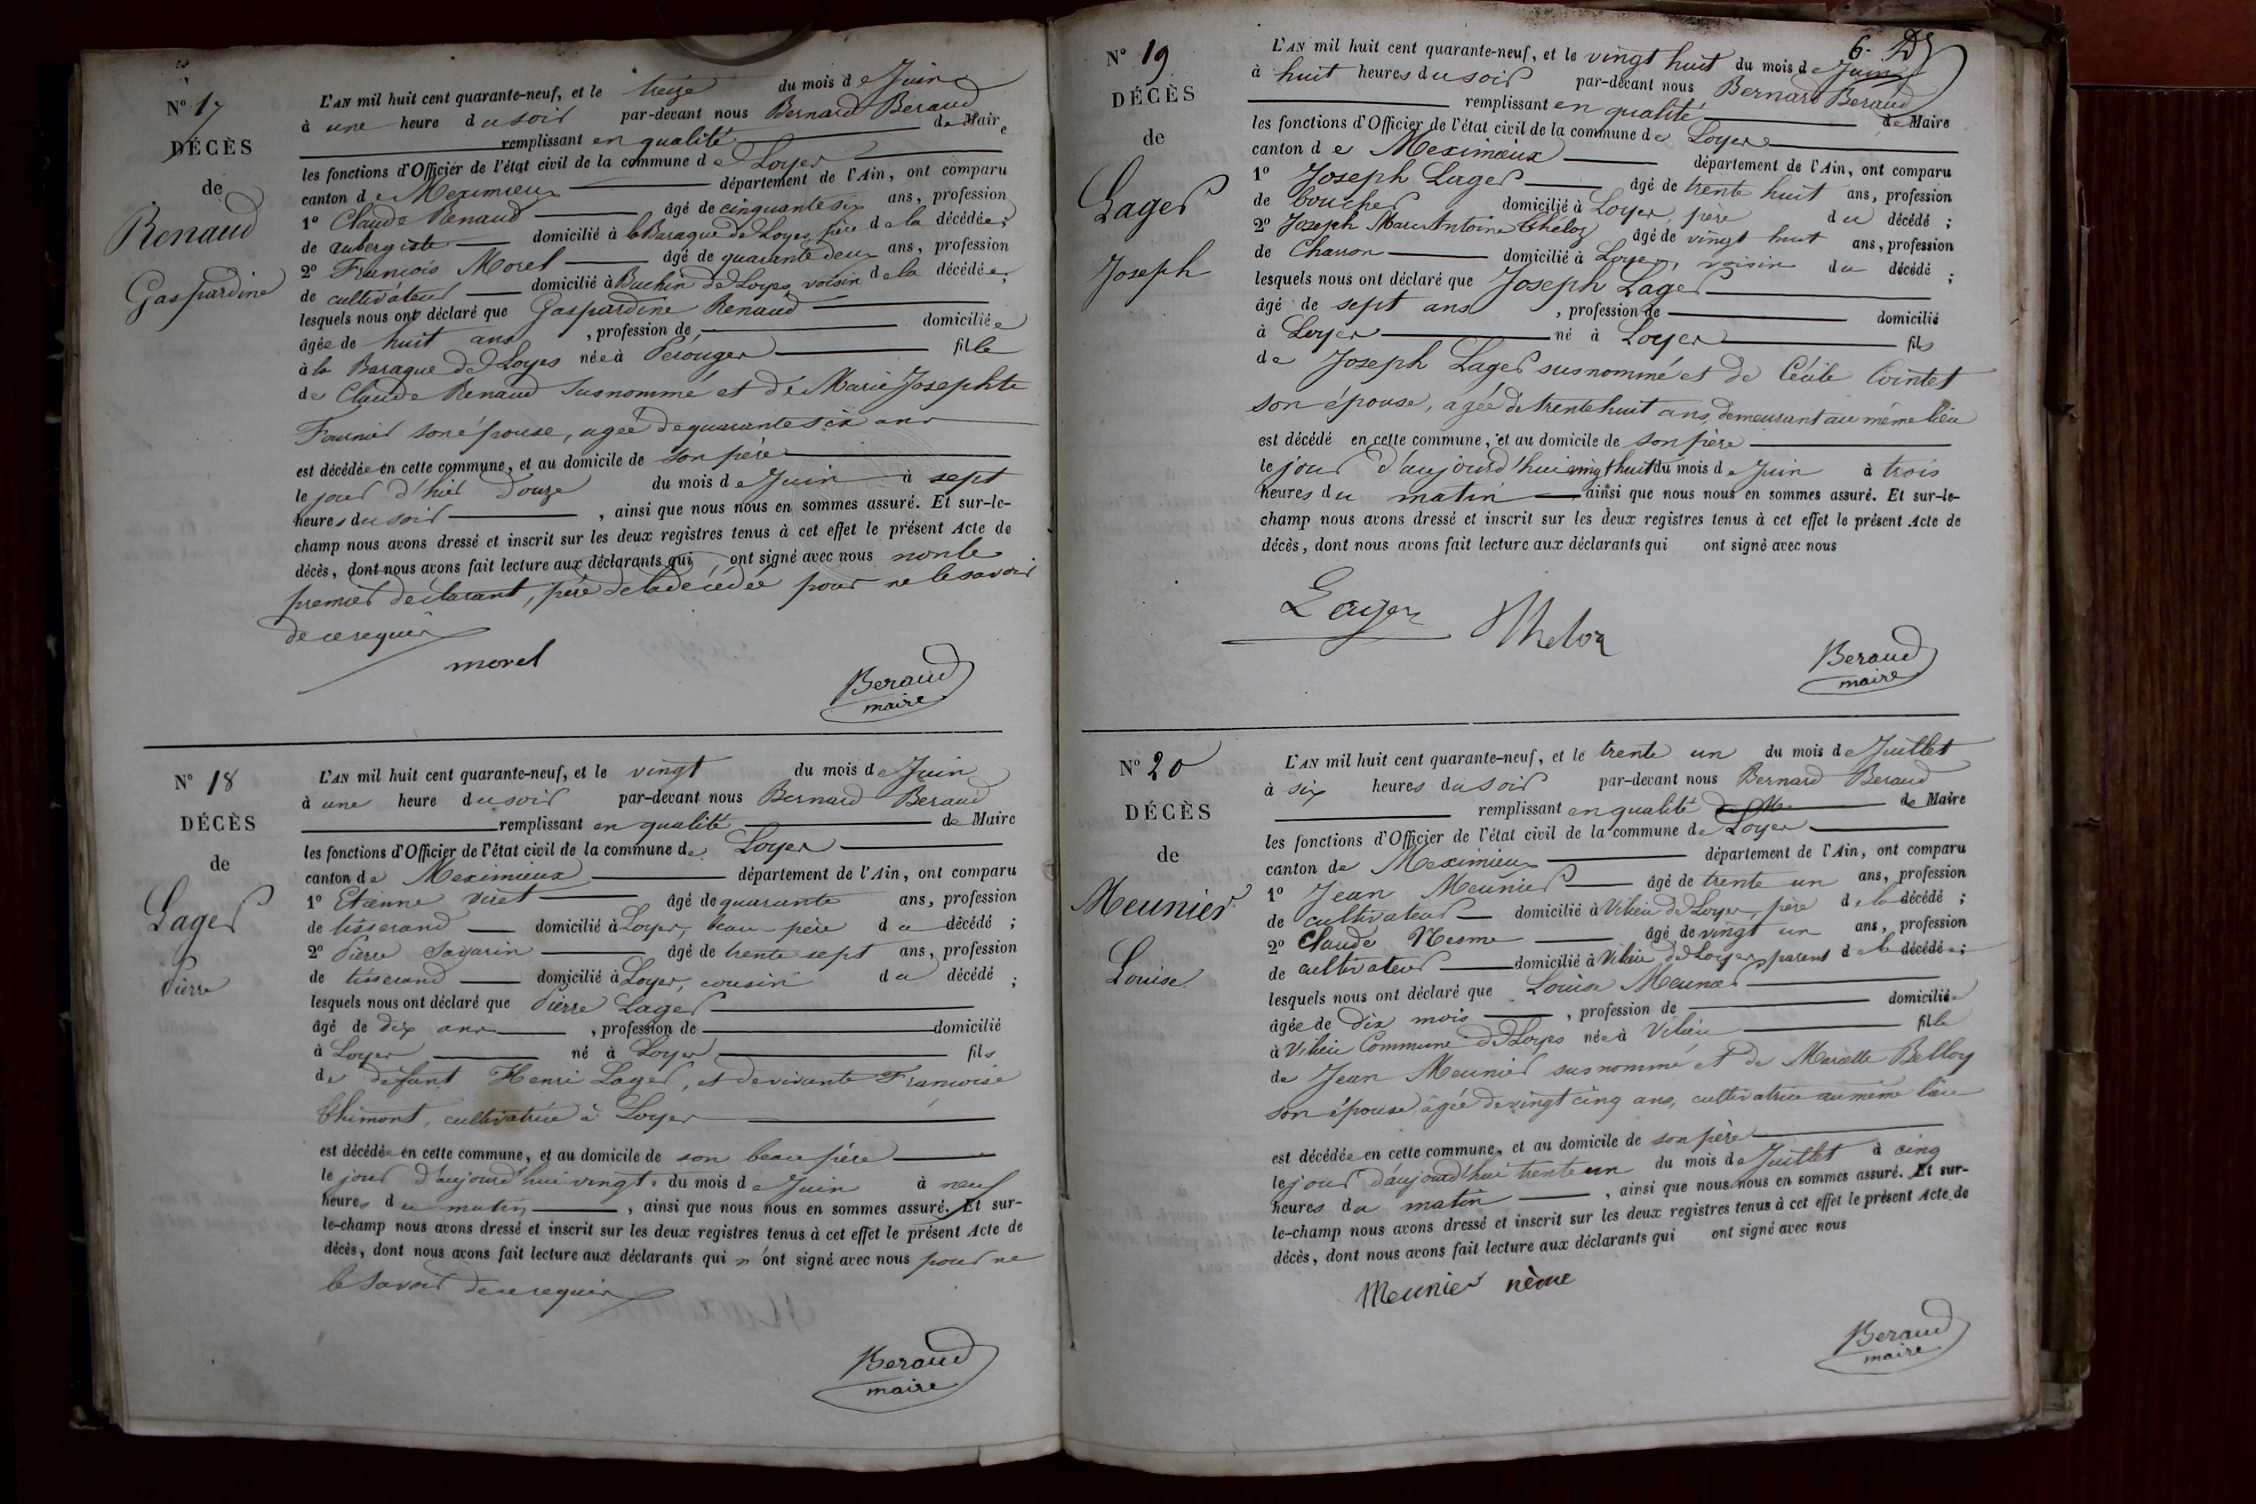 N° 17
DÉCÈS
de
Renaud
Gaspardine
L'AN mil huit cent quarante-neuf, et le treize du mois de Juin
à une heure du soir par-devant nous Bernard Beraud
remplissant en qualité de Maire
les fonctions d'Officier de l'état civil de la commune de Loyes
canton de Meximieux département de l'Ain, ont comparu
1° Claude Renaud âgé de cinquante six ans, profession
de aubergiste domicilié à la Baraque de Loyes, père de la décédée;
2° François Morel âgé de quarante deux ans, profession
de cultivateur domicilié à Buchin de Loyes, voisin de la décédée;
lesquels nous ont déclaré que Gaspardine Renaud
âgée de huit ans, profession de domiciliée
à la Baraque de Loyes née à Pérouges fille
de Claude Renaud susnommé et de Marie Josephte
Fournier son épouse, agée de quarante six ans
est décédée en cette commune, et au domicile de son père
le jour d'hier douze du mois de Juin à sept
heures du soir, ainsi que nous nous en sommes assuré. Et sur-le-
champ nous avons dressé et inscrit sur les deux registres tenus à cet effet le présent Acte de
décès, dont nous avons fait lecture aux déclarants qui ont signé avec nous non le
premier déclarant, père de la décédée pour ne le savoir
de ce requis
morel
Beraud
maire
N° 18
DÉCÈS
de
Lager
Pierre
L'AN mil huit cent quarante-neuf, et le vingt du mois de Juin
à une heure du soir par-devant nous Bernard Beraud
remplissant en qualité de Maire
les fonctions d'Officier de l'état civil de la commune de Loyes
canton de Meximieux département de l'Ain, ont comparu
1° Etienne Viret âgé de quarante ans, profession
de tisserand domicilié à Loyes, beau-père du décédé;
2° Pierre Savarin âgé de trente sept ans, profession
de tisserand domicilié à Loyes, cousin du décédé;
lesquels nous ont déclaré que Pierre Lager
âgé de dix ans, profession de domicilié
à Loyes né à Loyes fils
de défunt Henri Lager, et de vivante Françoise
Thimont, cultivatrice à Loyes
est décédé en cette commune, et au domicile de son beau père
le jour d'aujourd'hui vingt du mois de Juin à neuf
heures du matin, ainsi que nous nous en sommes assuré. Et sur-
le-champ nous avons dressé et inscrit sur les deux registres tenus à cet effet le présent Acte de
décès, dont nous avons fait lecture aux déclarants qui n'ont signé avec nous pour ne
le savoir de ce requis
Beraud
maire
6.
N° 19
DÉCÈS
de
Lager
Joseph
L'AN mil huit cent quarante-neuf, et le vingt huit du mois de Juin
à huit heures du soir par-devant nous Bernard Beraud
remplissant en qualité de Maire
les fonctions d'Officier de l'état civil de la commune de Loyes
canton de Meximieux département de l'Ain, ont comparu
1° Joseph Lager âgé de trente huit ans, profession
de boucher domicilié à Loyes, père du décédé;
2° Joseph Marie Antoine Théloz âgé de vingt huit ans, profession
de Charron domicilié à Loyes, voisin du décédé;
lesquels nous ont déclaré que Joseph Lager
âgé de sept ans, profession de domicilié
à Loyes né à Loyes fils
de Joseph Lager susnommé et de Cécile Cointet
son épouse, agée de trente huit ans, demeurant au même lieu
est décédé en cette commune, et au domicile de son père
le jour d'aujourd'hui vingt huit du mois de Juin à trois
heures du matin ainsi que nous nous en sommes assuré. Et sur-le-
champ nous avons dressé et inscrit sur les deux registres tenus à cet effet le présent Acte de
décès, dont nous avons fait lecture aux déclarants qui ont signé avec nous
Lager Theloz
Beraud
maire
N° 20
DÉCÈS
de
Meunier
Louise
L'AN mil huit cent quarante-neuf, et le trente un du mois de Juillet
à six heures du soir par-devant nous Bernard Beraud
remplissant en qualité de Maire
les fonctions d'Officier de l'état civil de la commune de Loyes
canton de Meximieux département de l'Ain, ont comparu
1° Jean Meunier âgé de trente un ans, profession
de cultivateur domicilié à Vilieu de Loyes, père de la décédé;
2° Claude Nesme âgé de vingt un ans, profession
de cultivateur domicilié à Vilieu de Loyes, parent de la décédée;
lesquels nous ont déclaré que Louise Meunier
âgée de dix mois, profession de domiciliée
à Vilieu Commune de Loyes née à Vilieu fille
de Jean Meunier susnommé et de Mariette Belloy
son épouse, agée de vingt cinq ans, cultivatrice au même lieu
est décédée en cette commune, et au domicile de son père
le jour d'aujourd'hui trente un du mois de Juillet à cinq
heures du matin, ainsi que nous nous en sommes assuré. Et sur-
le-champ nous avons dressé et inscrit sur les deux registres tenus à cet effet le présent Acte de
décès, dont nous avons fait lecture aux déclarants qui ont signé avec nous
Meunier nème
Beraud
maire